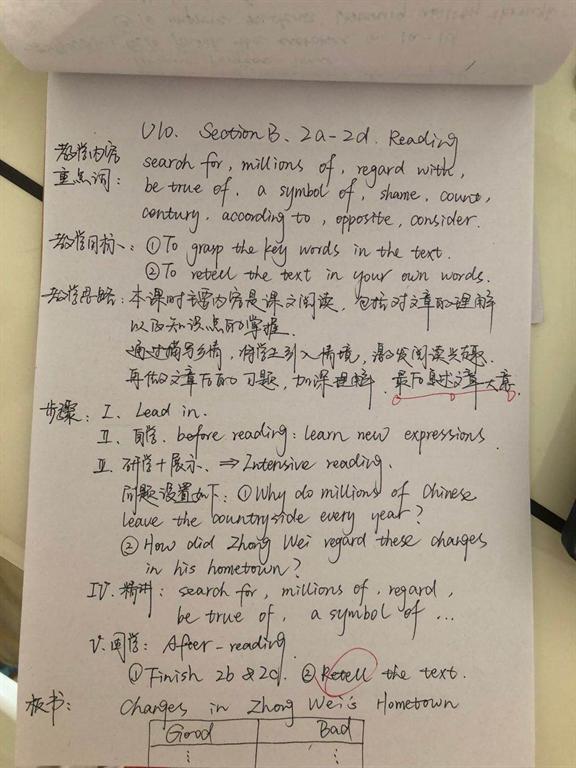 U10. Section B. 2a-2d. Reading
教学内容
重点词: search for, millions of, regard with,
be true of, a symbol of, shame, count,
century, according to, opposite, consider.
教学目标: ①To grasp the key words in the text.
②To retell the text in your own words.
教学思路: 本课时主要内容是课文阅读, 包括对文章的理解
以及知识点的掌握.
通过描写乡情, 将学生引入情境, 激发阅读兴趣.
再做文章后的习题, 加深理解. 最后复述文章大意.
步骤: I. Lead in.
II. 自学. before reading: learn new expressions.
III. 研学+展示. ⇒ Intensive reading.
问题设置如下: ①Why do millions of Chinese
leave the countryside every year?
② How did Zhong Wei regard these changes
in his hometown?
IV. 精讲: search for, millions of, regard,
be true of, a symbol of ...
V. 固学: After-reading
①Finish 2b & 2c. ②Retell the text.
板书: Changes in Zhong Wei's Hometown
Good Bad
⋮ ⋮